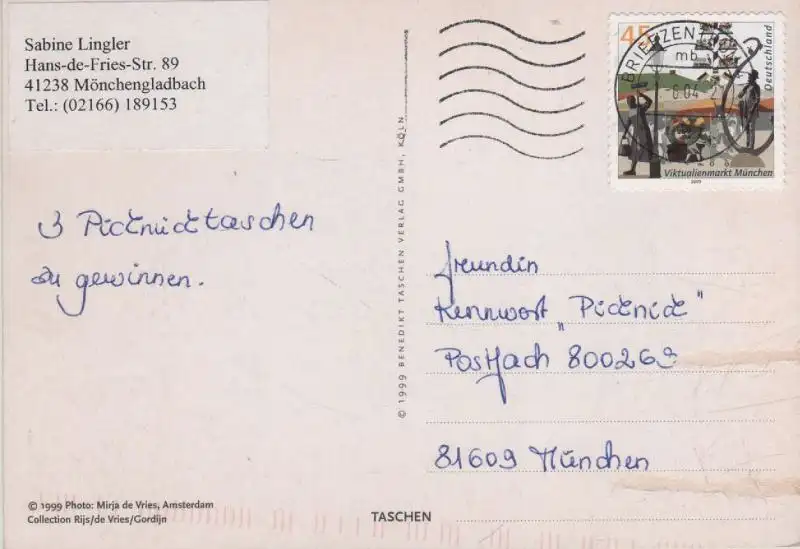 Sabine Lingler
Hans-de-Fries-Str. 89
41238 Mönchengladbach
Tel.: (02166) 189153
3 Picknicktaschen
zu gewinnen.
© 1999 Photo: Mirja de Vries, Amsterdam
Collection Rijs/de Vries/Gordijn
© 1999 BENEDIKT TASCHEN VERLAG GMBH, KÖLN
TASCHEN
45
Deutschland
BRIEFZENTRUM
mb
6.04
Viktualienmarkt München
freundin
Kennwort "Picknick"
Postfach 800269
81609 München